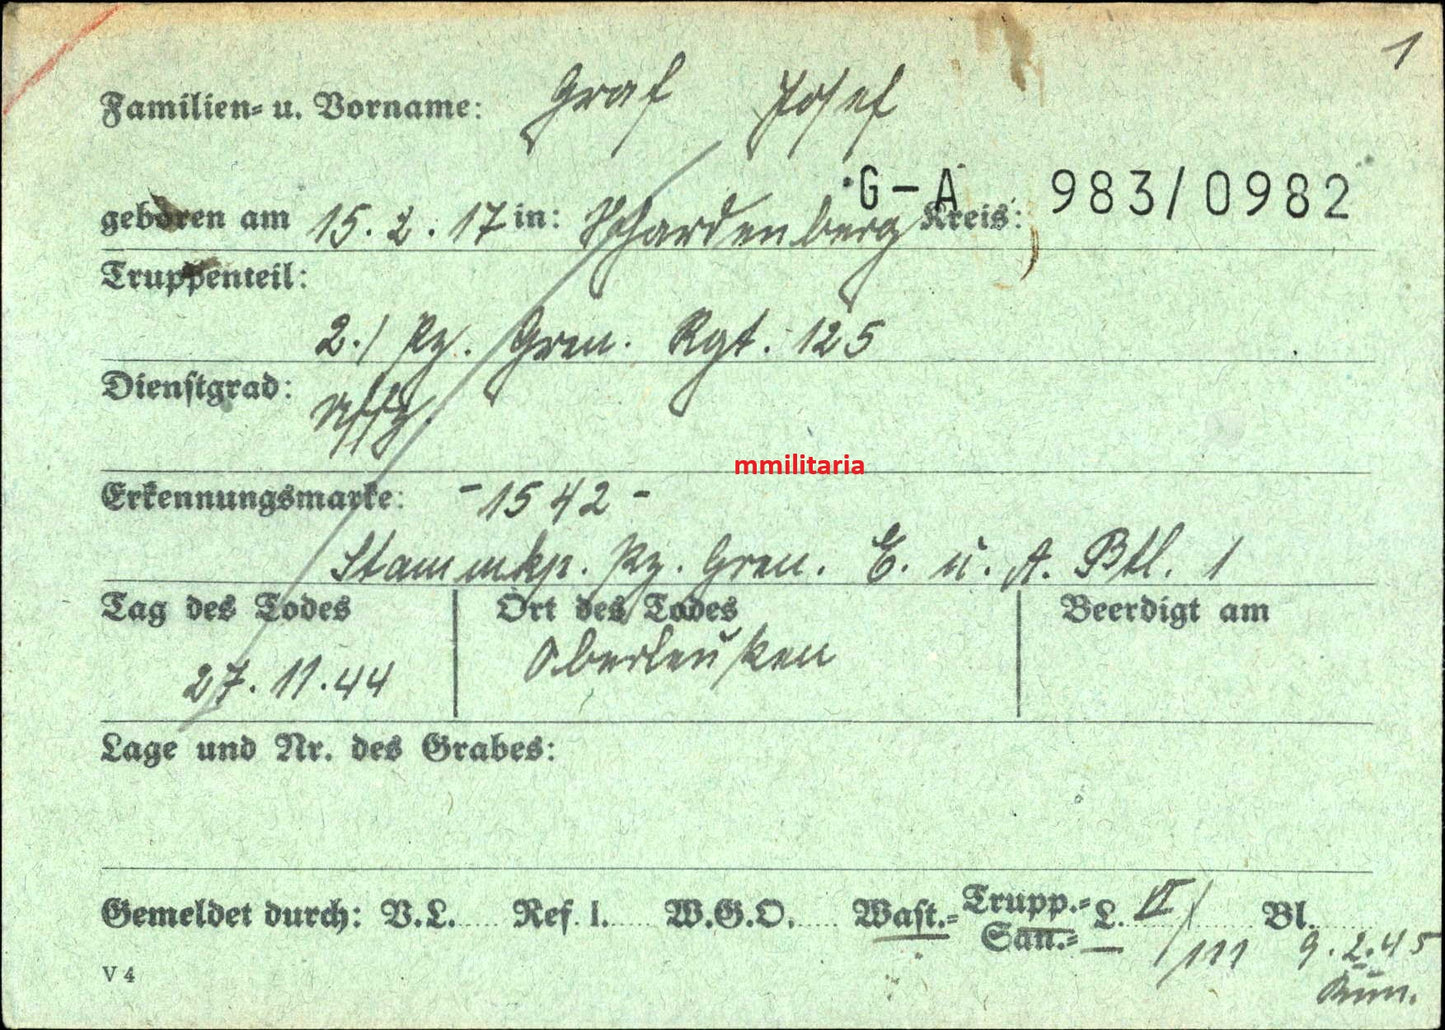 1
Familien- u. Vorname: Graf Josef
G-A 983/0982
geboren am 15.2.17 in: Schardenberg Kreis:
Truppenteil:
2./ Pz. Gren. Rgt. 125
Dienstgrad:
Uffz.
mmilitaria
Erkennungsmarke: -1542-
Stammkp. Pz. Gren. E. u. A. Btl. 1
Tag des Todes Ort des Todes Beerdigt am
27.11.44 Oberleuken
Lage und Nr. des Grabes:
Gemeldet durch: V.L. Ref. 1. W.G.O. Wast.- Trupp.- L. VI/111 Bl.
San.- 9.2.45
V 4